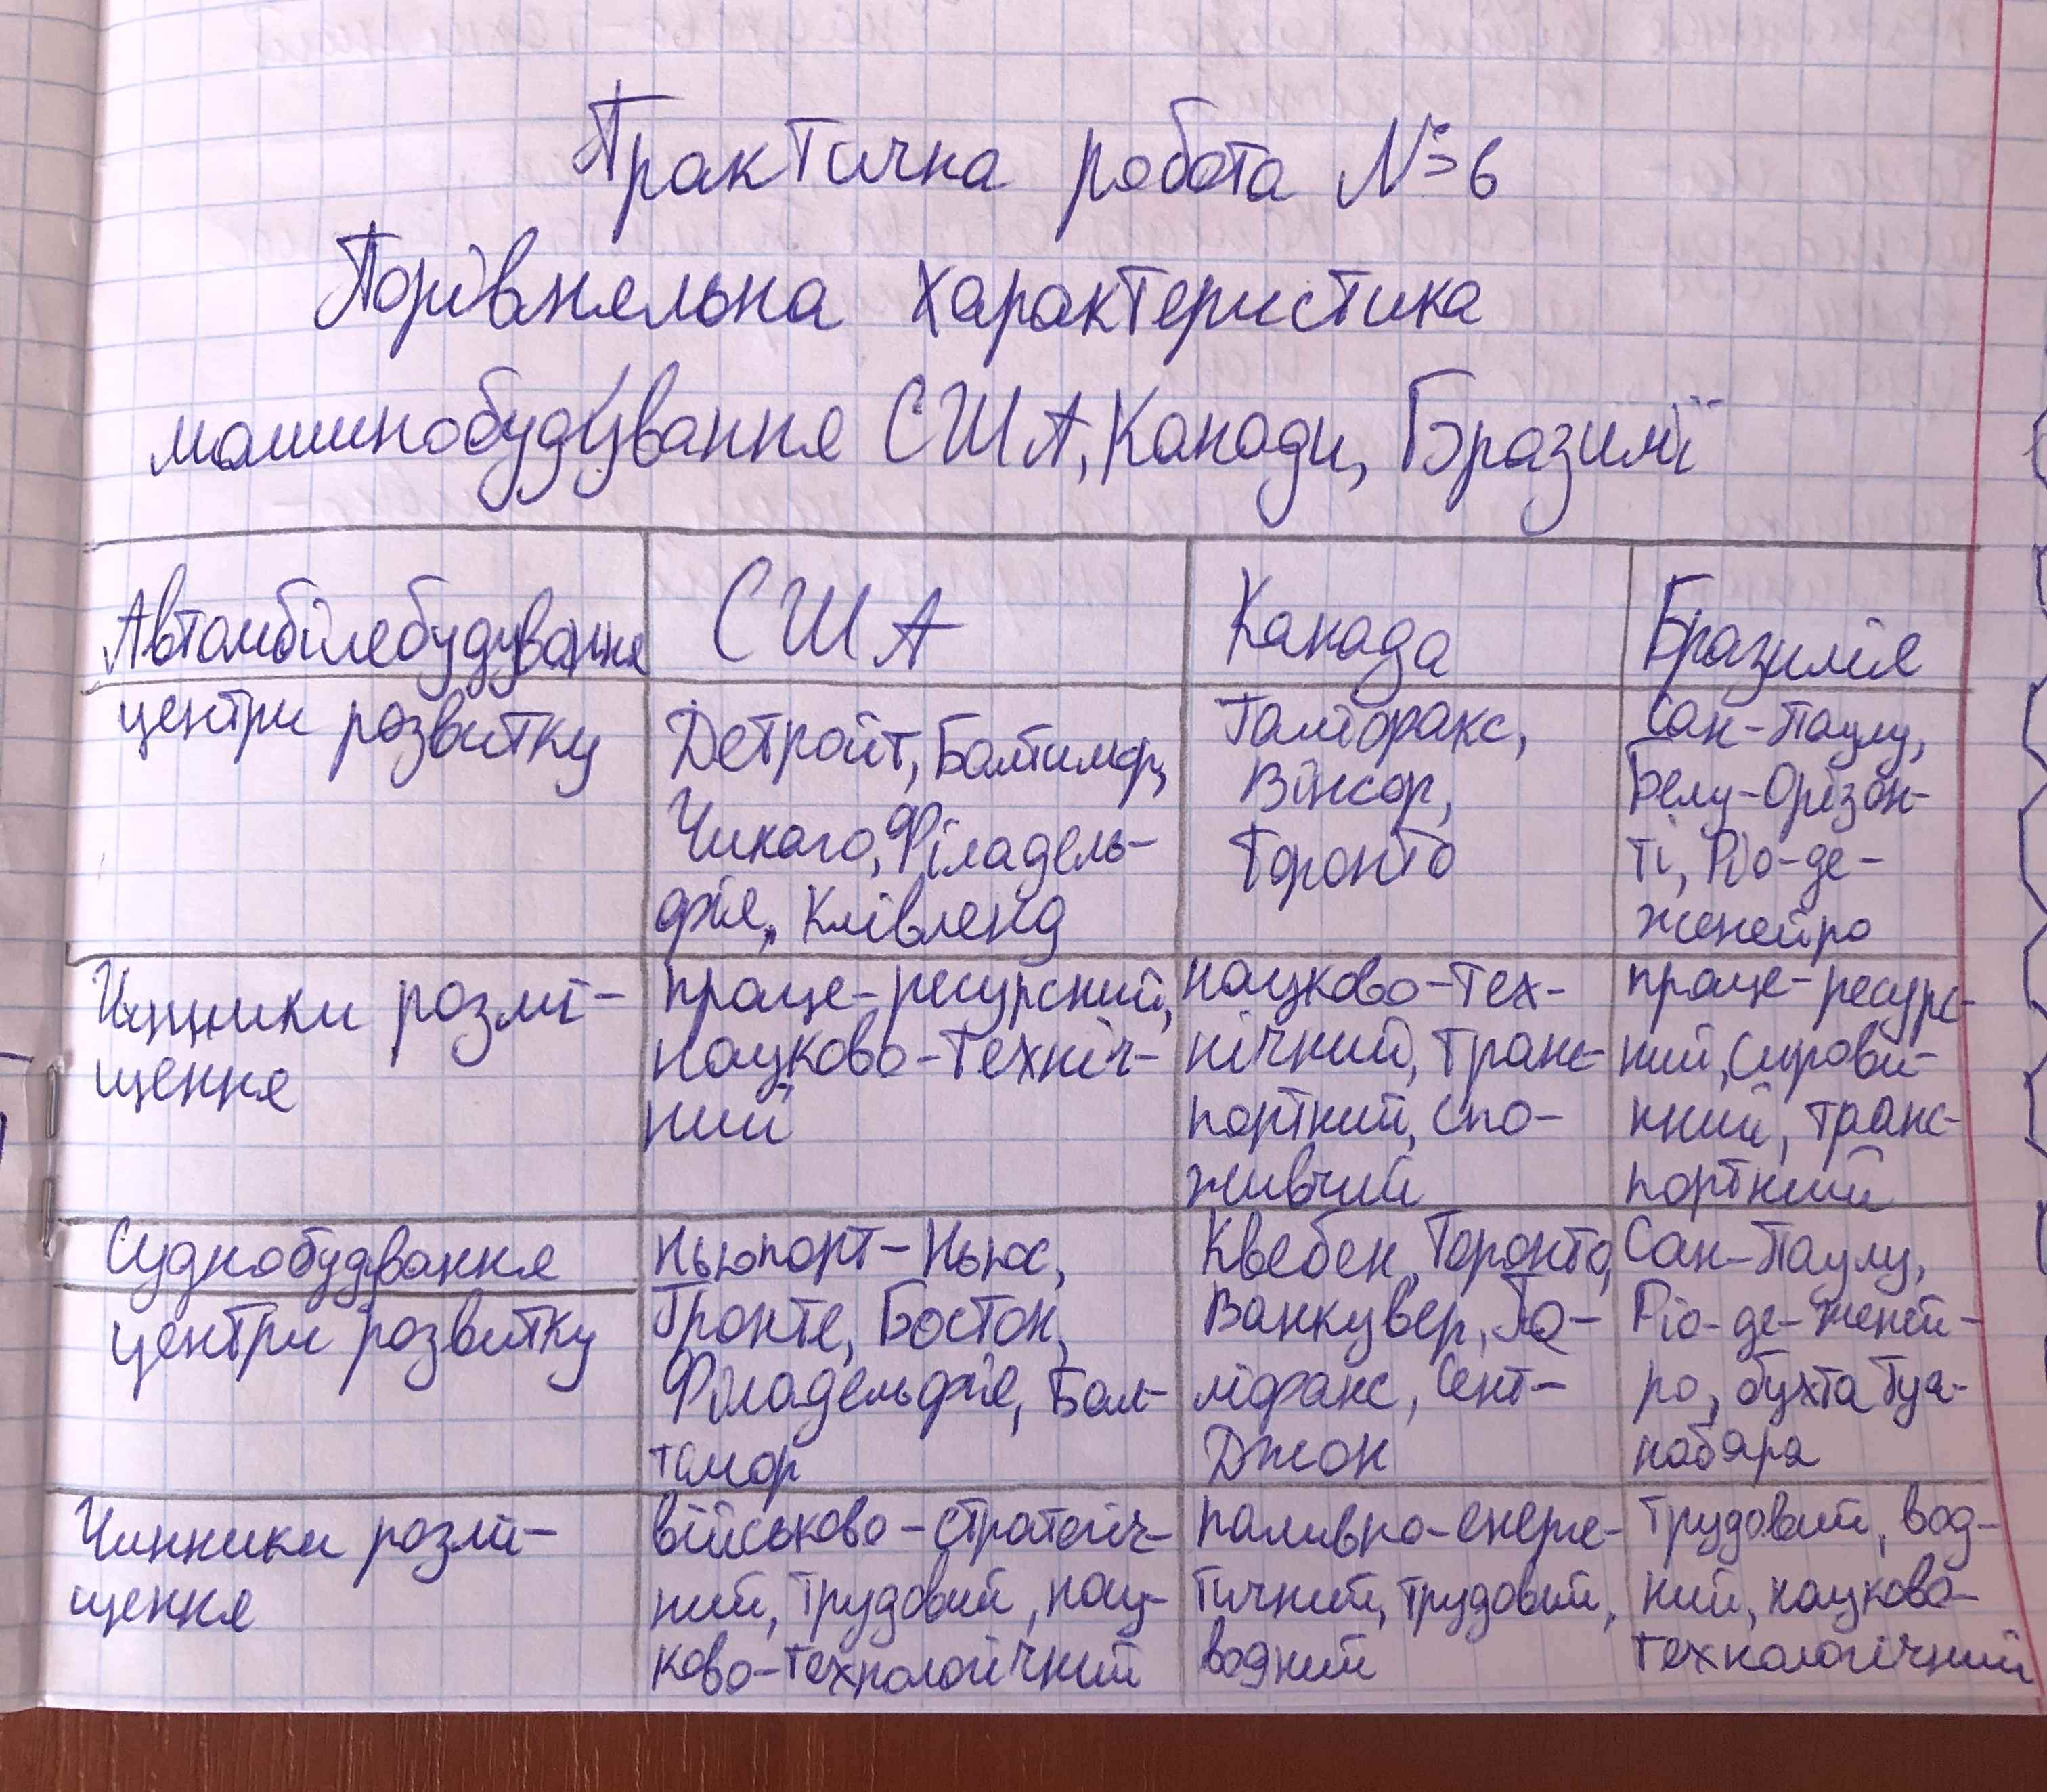 Практична робота №6
Порівняльна характеристика
машинобудування США, Канади, Бразилії
Автомбілебудування
США
Канада
Бразилія
центри розвитку
Детройт, Балтимор,
Чикаго, Філадель-
фія, Клівленд
Галіфакс,
Вінсор,
Торонто
Сан-Паулу,
Белу-Орізон-
ті, Ріо-де-
Женейро
Чинники розмі-
щення
праце-ресурсний,
науково-техніч-
ний
науково-тех-
нічний, транс-
портний, спо-
живчий
праце-ресурс-
ний, сирови-
нний, транс-
портний
Суднобудвання
центри розвитку
Ньюпорт-Ньюс,
Гронте, Бостон,
Філадельфія, Бал-
тимор
Квебек, Торонто,
Ванкувер, Га-
ліфакс, Сент-
Джон
Сан-Паулу,
Ріо-де-Женей-
ро, бухта Гуа-
набара
Чинники розмі-
щення
військово-стратегіч-
ний, трудовий, нау-
ково-технологічний
паливно-енерге-
тичний, трудовий,
водний
трудовий, вод-
ний, науково-
технологічний